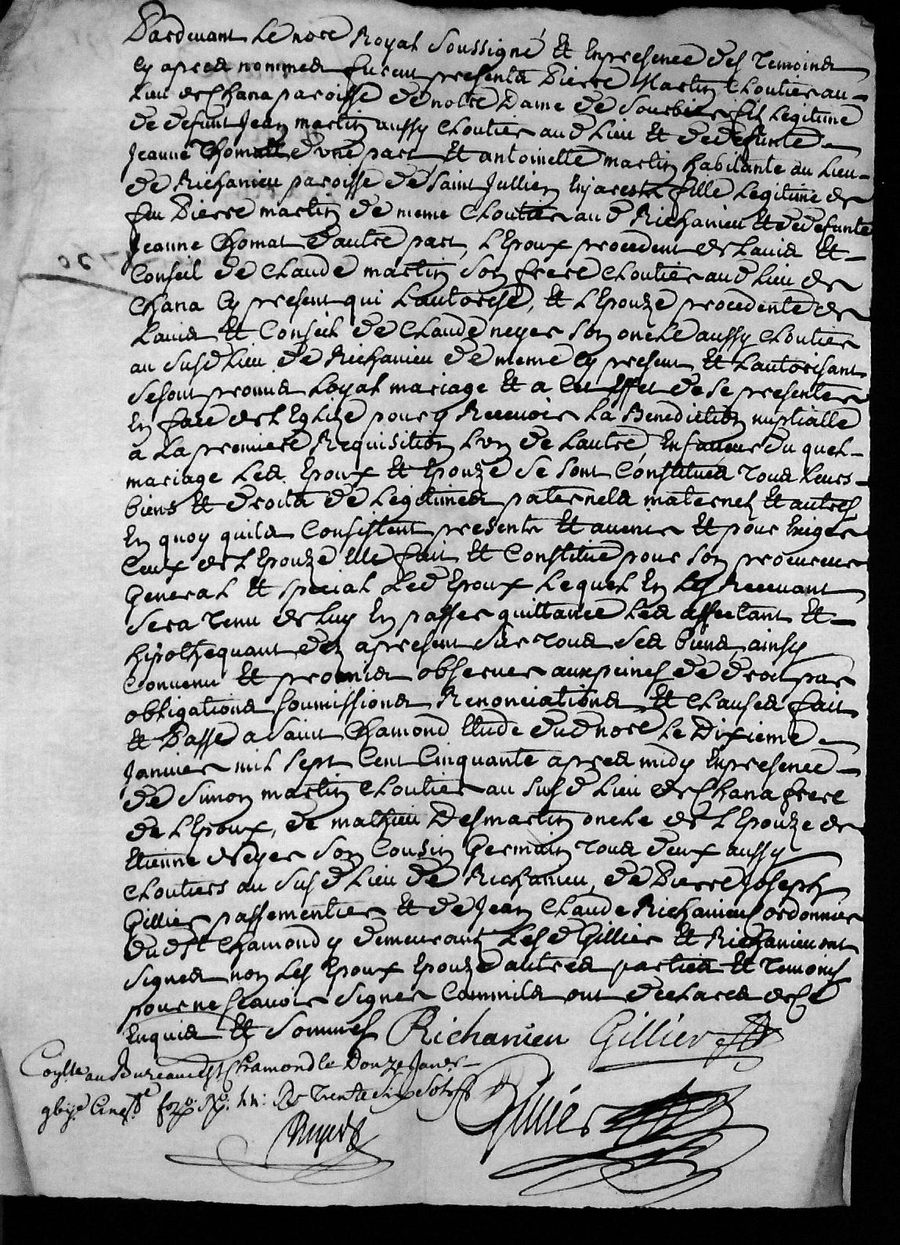 Pardevant Le no.re Royal Soussigné Et En presence des Temoins
Cy apres nommes furent presents Pierre Martin Cloutier au
Lieu de Chana paroisse de notre Dame de Sorbier fils Legitime
De defunt Jean martin aussy Cloutier au d Lieu Et de defunte
Jeanne Chomatt d'une part Et antoinette martin habitante du Lieu
De Richanieu paroisse de Saint Jullien En jarest fille Legitime de
feu Pierre martin De meme Cloutier au d Richanieu Et de defunte
Jeanne Chomat D'autre part, L'Epoux procedent de L'avis Et
Conseil De Claude martin Son frere Cloutier au d Lieu de
Chana Cy present qui L'autorise, Et L'Epouze procedente de
L'avis Et Conseil De Claude neyer Son oncle aussy Cloutier
au Susd Lieu De Richanieu De meme Cy present Et L'autorisant
Se sont promis Loyal mariage Et a Cet Effet De Se presenter
En face de L'Eglize pour y Recevoir La Benediction nuptialle
a La premiere Requisition L'un de L'autre, En faveur Du quel
mariage Les d. Epoux Et Epouze Se Sont Constitués Tous Leurs
biens Et droits De Legitimes paternels maternels Et autres
En quoy quils Consistent presents Et avenir Et pour Exiger
Ceux de L'Epouze Elle fait Et Constitue pour Son procureur
General Et Special Led Epoux Lequel En Les Recevant
Sera Tenu de Luy En passer quittance Les affectant Et
hipothequant des apresent Sur Tous Ses biens ainsy
Convenu Et promis observer aux peines De droit par
obligations Soumissions Renonciations Et Clauses fait
Et Passé a Saint Chamond Etude du d no.re Le Dixieme
Janvier mil Sept Cent Cinquante apres midy En presence
de Simon martin Cloutier au Susd Lieu de Chana frere
de L'Epoux, de mathieu Desmartin oncle de L'Epouze de
Etienne Neyer Son Cousin Germain Tous deux aussy
Cloutiers au Susd Lieu De Richanieu, de Pierre Joseph
Gillier passementier Et de Jean Claude Richanieu Cordonnier
Du d St Chamond y demeurants Les d Gillier Et Richanieu ont
Signés non Les Epoux Epouze autres parties Et Temoins
pour ne Scavoir Signer Comme ils ont declarés de Ce
Enquis Et Sommes Richanieu Gillier
au Bureau de St Chamond le Douze Janv.
Cinq.te fo Ro. Trente six Sols